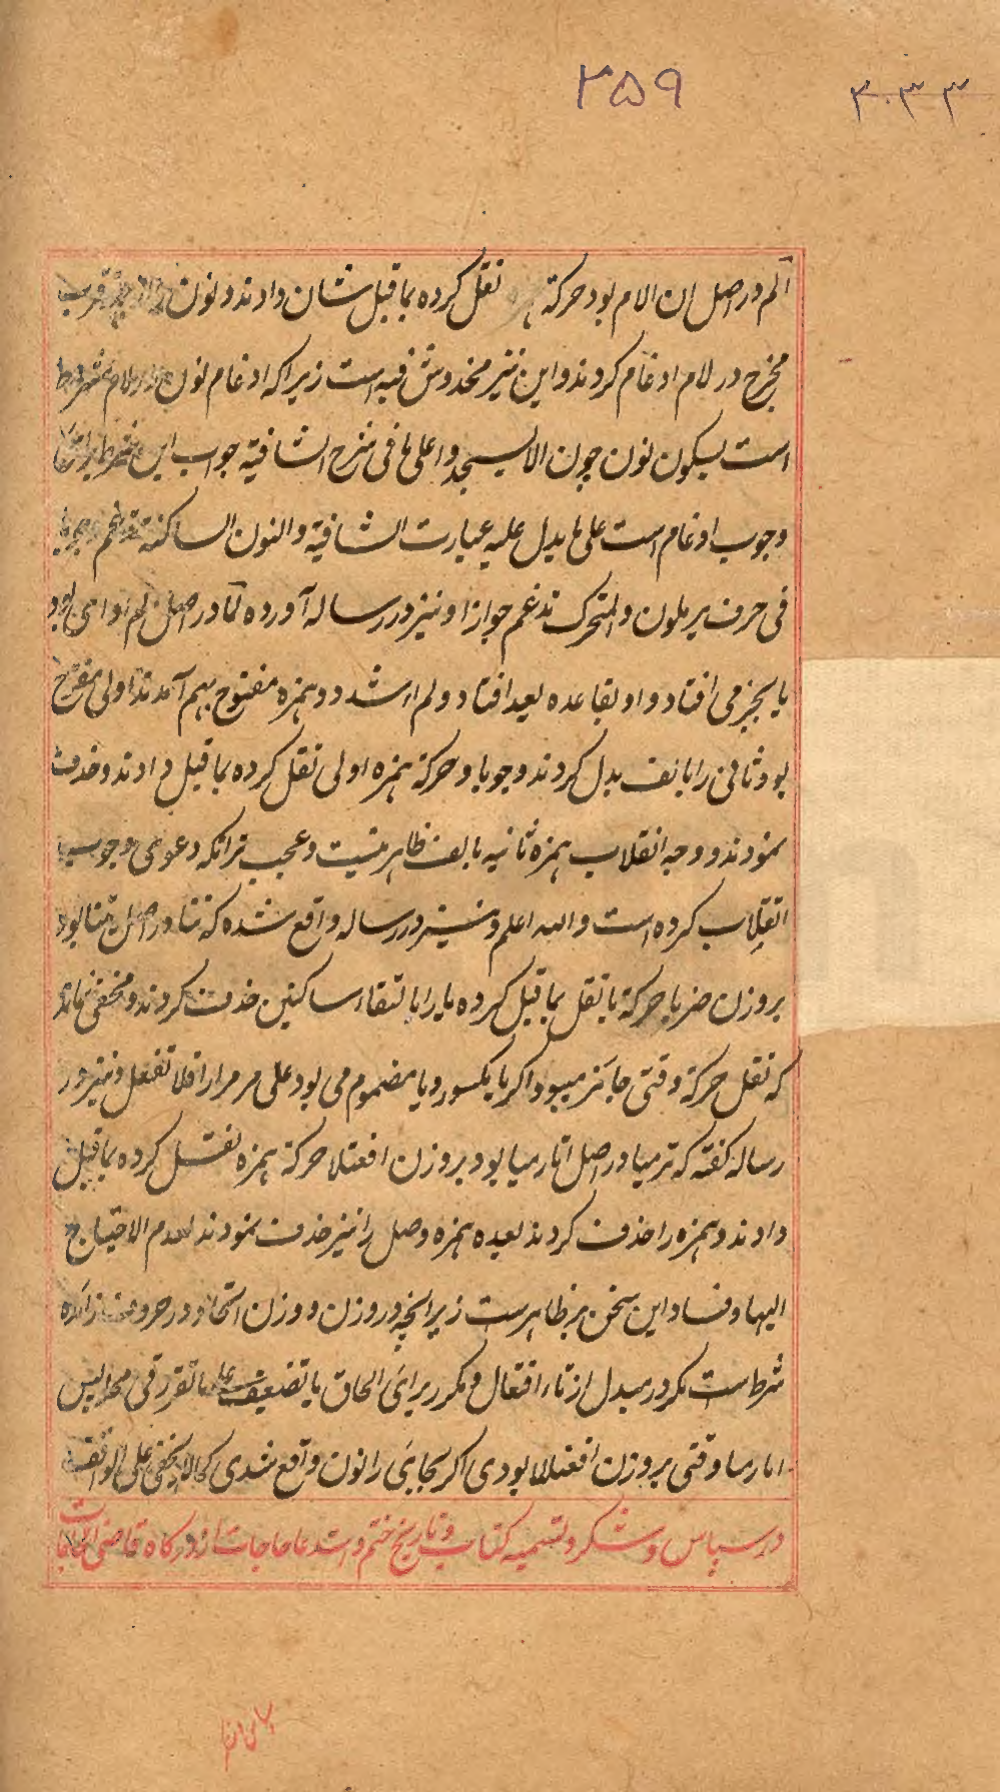 ۳۰۳۳
۲۵۹
الم در اصل ان الام بود حرکة نقل کرده بماقبل شان دادند و نون را قرب
مخرج در لام ادغام کردند و این نیز مخدوش فیه است زیرا که ادغام نون در لام مشروط
است بسکون نون چون الا یسجدوا علی ما فی شرح الشافیة جواب این شرط برای
وجوب ادغام است علی ما یدل علیه عبارت الشافیة و النون الساکنة تدغم وجوبا
فی حرف یرملون و المتحرک تدغم جوازا و نیز در رساله آورده لما در اصل لم اوامی بود
یا بجزمی افتاد واو بقاعده یعد افتاد و لم اا شد دو همزه مفتوح بهم آمدند اولی مفتوح
بود ثانی را بالف بدل کردند وجوبا و حرکة همزه اولی نقل کرده بماقبل دادند و حذف
نمودند و وجه انقلاب همزه ثانیه بالف ظاهر نیست و عجب تر آنکه دعوی وجوب
انقلاب کرده است و الله اعلم و نیز در رساله واقع شده که تنا در اصل بود
بروزن ضربا حرکة یا نقل بماقبل کرده یا را بالتقاء ساکنین حذف کردند و مخفی نماند
که نقل حرکة وقتی جائز میبود اگر یا مکسور و یا مضموم می بود علی ما مر مرارا فلا تغفل و نیز در
رساله گفته که ترمیا در اصل اتارمیا بود بروزن افعتلا حرکة همزه نقل کرده بماقبل
دادند و همزه را حذف کردند بعده همزه وصل را نیز حذف نمودند لعدم الاحتیاج
الیها و فساد این سخن بر ظاهرست زیرا آنچه در وزن و وزن اتحاد در حروف زائده
شرط است مگر در مبدل از تاء افتعال و مکرر برای الحاق یا تضعیف علی ما تقرر فی محله لیس
اتارمیا وقتی بروزن افعتلا بودی اگر بجای را نون واقع شدی کما لا یخفی علی الواقف
در سپاس و شکر و تسمیه کتاب و تاریخ ختم و استدعا حاجات از درگاه قاضی الحاجات